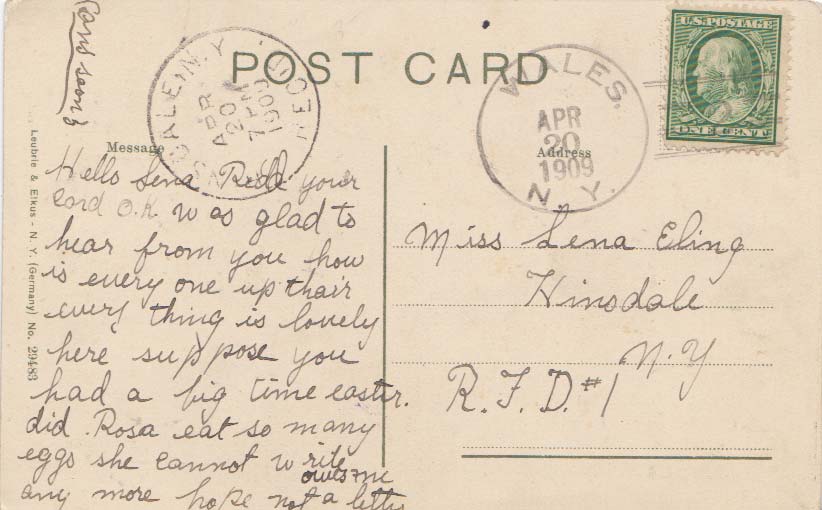 POST CARD
Card soon &
HINSDALE, N.Y.
APR
20
7 PM
1909
REC'D
WALES.
APR
20
1909
N.Y.
U.S. POSTAGE
ONE CENT
Message
Address
Leubrie & Elkus - N. Y. (Germany) No. 29483
Hello Lena Recd your
Card O.K was glad to
hear from you how
is every one up thair
every thing is lovely
here suppose you
had a big time easter.
did Rosa eat so many
eggs she cannot write
owes me
any more hope not a letter
Miss Lena Eling
Hinsdale
N.Y
R.F.D. #1